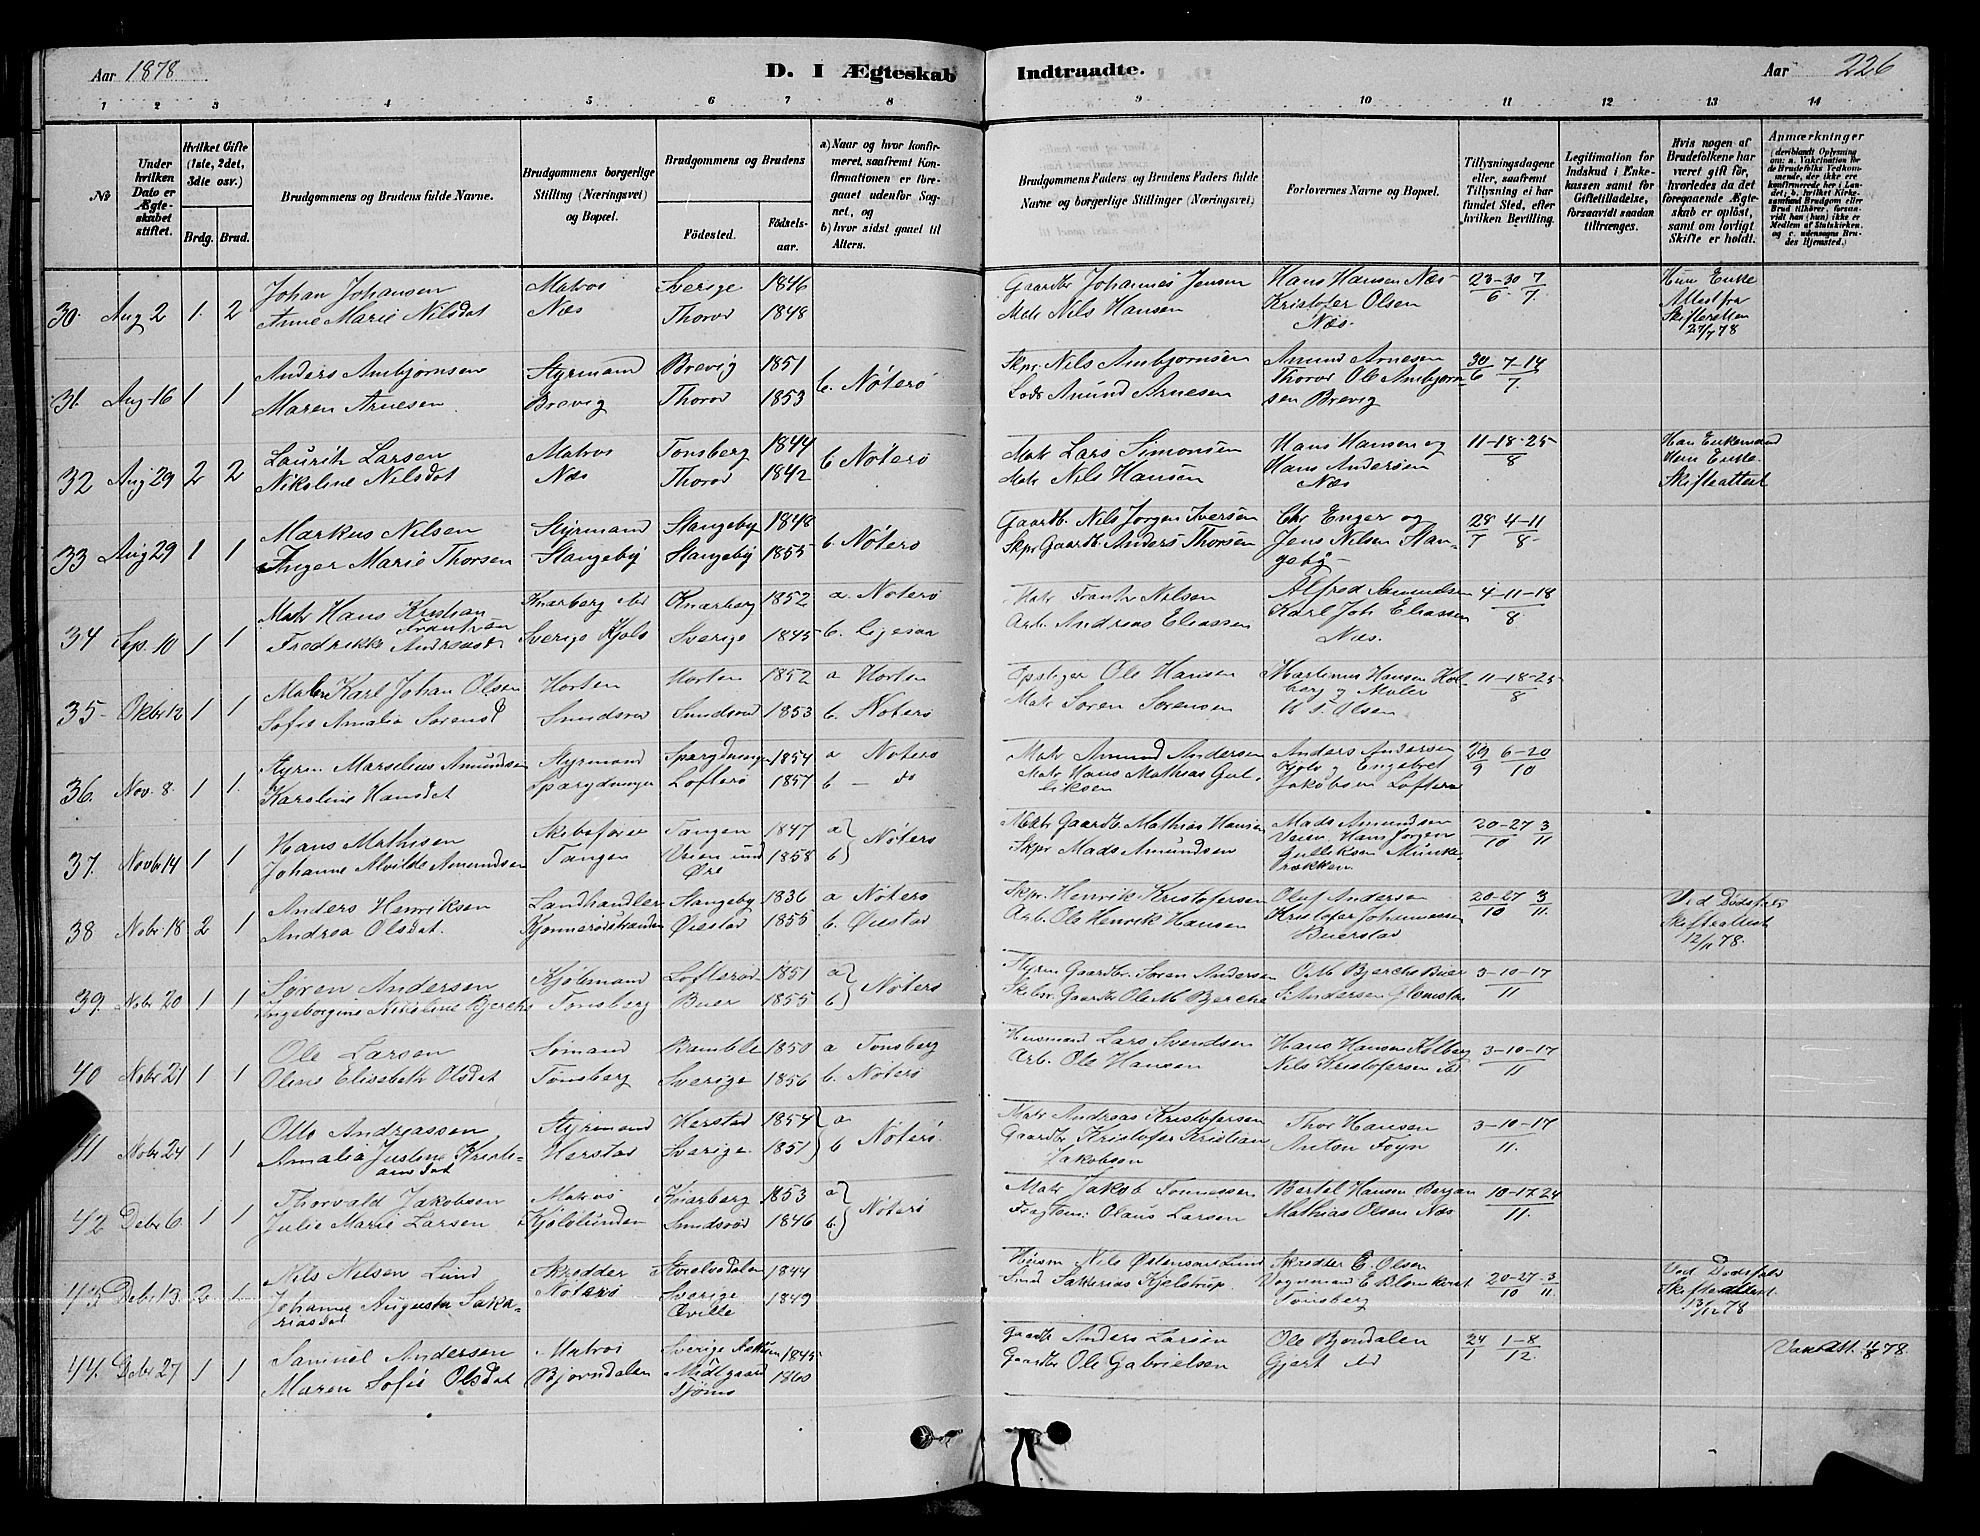 Aar 1878
D. I Ægteskab
Indtraadte.
Aar 226
1 2 3 4 5 6 7 8 9 10 11 12 13 14
№
Under hvilken Dato er Ægteskabet stiftet.
Hvilket Gifte (1ste, 2det, 3die osv.)
Brdg. Brud.
Brudgommens og Brudens fulde Navne.
Brudgommens borgerlige Stilling (Næringsvei) og Bopæl.
Brudgommens og Brudens
Fødested.
Fødselsaar.
a) Naar og hvor konfirmeret, saafremt Konfirmationen er foregaaet udenfor Sognet, og
b) hvor sidst gaaet til Alters.
Brudgommens Faders og Brudens Faders fulde Navne og borgerlige Stillinger (Næringsvei)
Forlovernes Navne og Bopæl.
Tillysningsdagene eller, saafremt Tillysning ei har fundet Sted, efter hvilken Bevilling.
Legitimation for Indskud i Enkekassen samt for Giftetilladelse, forsaavidt saadan tiltrænges.
Hvis nogen af Brudefolkene har været gift før, hvorledes da det foregaaende Ægteskab er opløst, samt om lovligt Skifte er holdt.
Anmærkninger
(deriblandt Oplysning om: a. Vakcination for de Brudefolks Vedkommende, der ikke ere konfirmerede her i Landet, b. hvilket Kirkesamfund Brudgom eller Brud tilhører, forsaavidt han (hun) ikke er Medlem af Statskirken, og c. udensogns Brudes Hjemsted.)
30. Aug 2 1. 2 Johan Johansen Matros Sverige 1846 Gaardbr Johannes Jensen Hans Hansen Næs 23-30/6 7/7 Hun Enke
Anne Marie Nilsdat Næs Thorød 1848 Matr Nils Hansen Kristofer Olsen Attest fra
Næs. Skifteretten
27/7 78
31. Aug 16 1 1 Anders Ambjørnsen Styrmand Brevig 1851 b. Nøterø Skpr. Nils Ambjørnsen Amund Arnesen 30/6 7-14/7
Maren Arnesen Brevig Thorød 1853 Lods Amund Arnesen Thorød Ole Ambjørn-
sen Brevig
32 Aug 29 2 2 Lauritz Larsen Matros Tønsberg 1844 b Nøterø Matr Lars Simonsen Hans Hansen og 11-18-25/8 Han Enkemand
Nikoline Nilsdat Næs Thorød 1842 Matr Nils Hansen Hans Andersen Hun Enke
Næs Skifteattest
33 Aug 29 1 1 Markus Nilsen Styrmand Stangeby 1848 b. Nøterø Gaardb. Nils Jørgen Iversen Chr Enger og 28/7 4-11/8
Inger Marie Thorsen Stangeby Stangeby 1855 Skpr Gaardb. Anders Thorsen Jens Nilsen Stan-
geby
34 Sep. 10 1 1 Matr Hans Kristian Knarberg Knarberg 1852 a. Nøterø Matr Frantz Nilsen Alfred Samuelsen 4-11-18/8
Frantzsen
Fredrikke Andreasdt Sverige Kjølø Sverige 1845 b. Ligesaa Arb. Andreas Eliassen Karl Joh Eliassen
Næs.
35 Oktbr 12 1 1 Maler Karl Johan Olsen Horten Horten 1852 a Horten Ole Hansen Martinus Hansen Kol- 11-18-25/8
Sofie Amalia Sørensd Smidsrød Smidsrød 1853 b. Nøterø Matr Søren Sørensen berg og Maler
Olsen
36. Nov. 8 1 1. Styrm Marselius Amundsen Styrmand 1854 a Nøterø Matr Amund Andersen Anders Andersen 29/9 6-20/10
Karoline Hansdat Lofterø 1857 b — do Matr Hans Mathias Gul- Kjølø og Engebret
liksen Jakobsen Lofterø
37. Novbr 14 1 1 Hans Mathisen Skibsfører Tangen 1847 a} Nøterø Matr Gaardb. Mathias Hansen Mads Amundsen 20-27/10 3/11
Johanne Alvilde Amundsen Tangen Veien und 1858 b} Skpr Mads Amundsen Veien Hans Jørgen
Øre Gulleksen Munke-
rækken
38 Nobr 18 2 1 Anders Henriksen Landhandler Stangeby 1836 a Nøterø Skpr. Henrik Kristofersen Oluf Andersen 20-27/10 3/11. Ved Dødsfald
Andrea Olsdat. Øiestad 1855 b. Øiestad Arb. Ole Henrik Hansen Kristofer Johannessen Skifteattest
Buerstad 12/11 78.
39. Nobr 20 1 1 Søren Andersen Kjøbmand Lofterød 1851 a} Nøterø Styrm Gaardbr. Søren Andersen O. M. Bjerche Buer 3-10-17/11
Ingeborgine Nikoline Bjerche Tønsberg Buer 1855 b} Skbm. Gaardbr Ole M. Bjerche S. Andersen
40 Nobr 21 1. 1 Ole Larsen Sømand Bamble 1850 a Tønsberg Husmand Lars Svendsen Hans Hansen Kolberg 3-10-17/11
Oline Elisabeth Olsdat Tønsberg Sverige 1856 b. Nøterø Arb. Ole Hansen Nils Kristofersen ibd
41 Nobr 24 1 1 Otto Andreassen Styrmand Herstad 1854 a} Nøterø. Matr Andreas Kristofersen Thor Hansen 3-10-17/11.
Amalia Justine Kristi- Herstad Sverige 1851 b} Gaardbr Kristofer Kristian Anton Foyn
ansdat Jakobsen
42 Debr 6 1 1 Thorvald Jakobsen Matros Knarberg 1853 a} Nøterø Matr Jakob Tønnessen Bertel Hansen Bergan 10-17 24/11
Julie Marie Larsen Kjøløs lunden Smidsrød 1846 b} Fragtm: Olaus Larsen Mathias Olsen Næs
43 Debr 13. 2. 1 Nils Nilsen Lund Skredder 1844 Nils Østensen Lund Skredder E. Olsen 20-27/10 3/11. Ved Dødsfald
Johanne Augusta Saka- Nøterø Sverige 1849 Smd Sakkerias Kjelstrup. Vognmand E Blomkvist Skifteattest
riasdat Qville Tønsberg 13/12 78
44. Debr 27 1 1 Samuel Andersen Matros Sverige 1845 Gaardb Anders Larsen Ole Bjøndalen 24/1 1-8/12. Vaccatt. 11/8 78.
Maren Sofie Olsdat Bjørndalen Midtgaard 1860 Gaardbr Ole Gabrielsen Gjert ibd
Tjømø